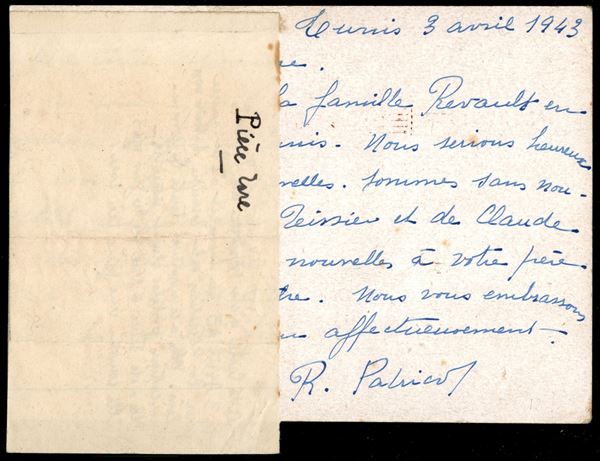 Tunis 3 avril 1943
re.
la famille Revault en
nis. Nous serions heureux
velles. Sommes sans nou-
Teissier et de Claude.
nouvelles à votre frère
tre. Nous vous embrassons
affectueusement.
R. Patricot
Pièce rare